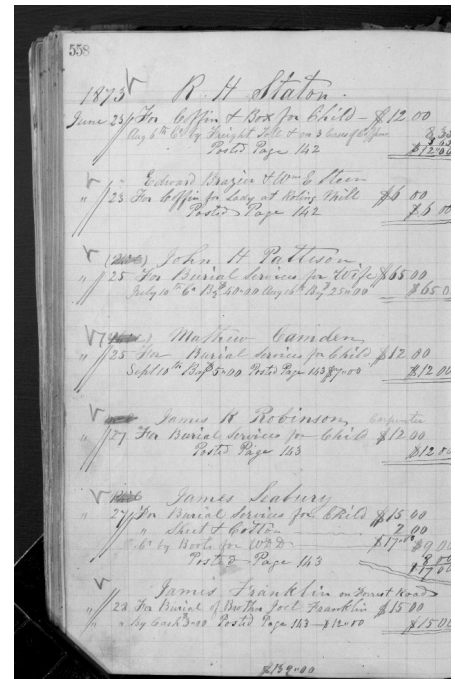 558
1873 R H Staton
June 23 For Coffin & Box for Child - $12.00
Aug 6th Cr by Freight & on 3 Cases of Coffins 8.35
Posted Page 142 $12.00
Edward Brazier & Wm E
" 23 For Coffin for Lady at Roling Mill $6.00
Posted Page 142 $6.00
John H Patteson
" 25 For Burial Services for Wife $65.00
July 10th Cr By $40.00 Aug 16th By $25.00 $65.00
Mathew Camden
" 25 For Burial Services for Child $12.00
Sept 10th By $5.00 Posted Page 143 $7.00 $12.00
James R Robinson, Carpenter
" 27 For Burial Services for Child $12.00
Posted Page 143 $12.00
James Seabury
" 27 For Burial Services for Child $15.00
" Sheet & Cotton 2.00
Cr by Boots for $17.00 $9.00
Posted Page 143 8.00
$17.00
James Franklin on Forest Road
" 28 For Burial of Brother Joel Franklin $15.00
" " By Cash 3.00 Posted Page 143 - $12.00 $15.00
$139.00